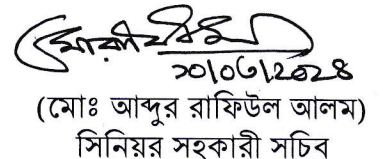 ১০/০৩/২০২৪
(মোঃ আব্দুর রাফিউল আলম)
সিনিয়র সহকারী সচিব